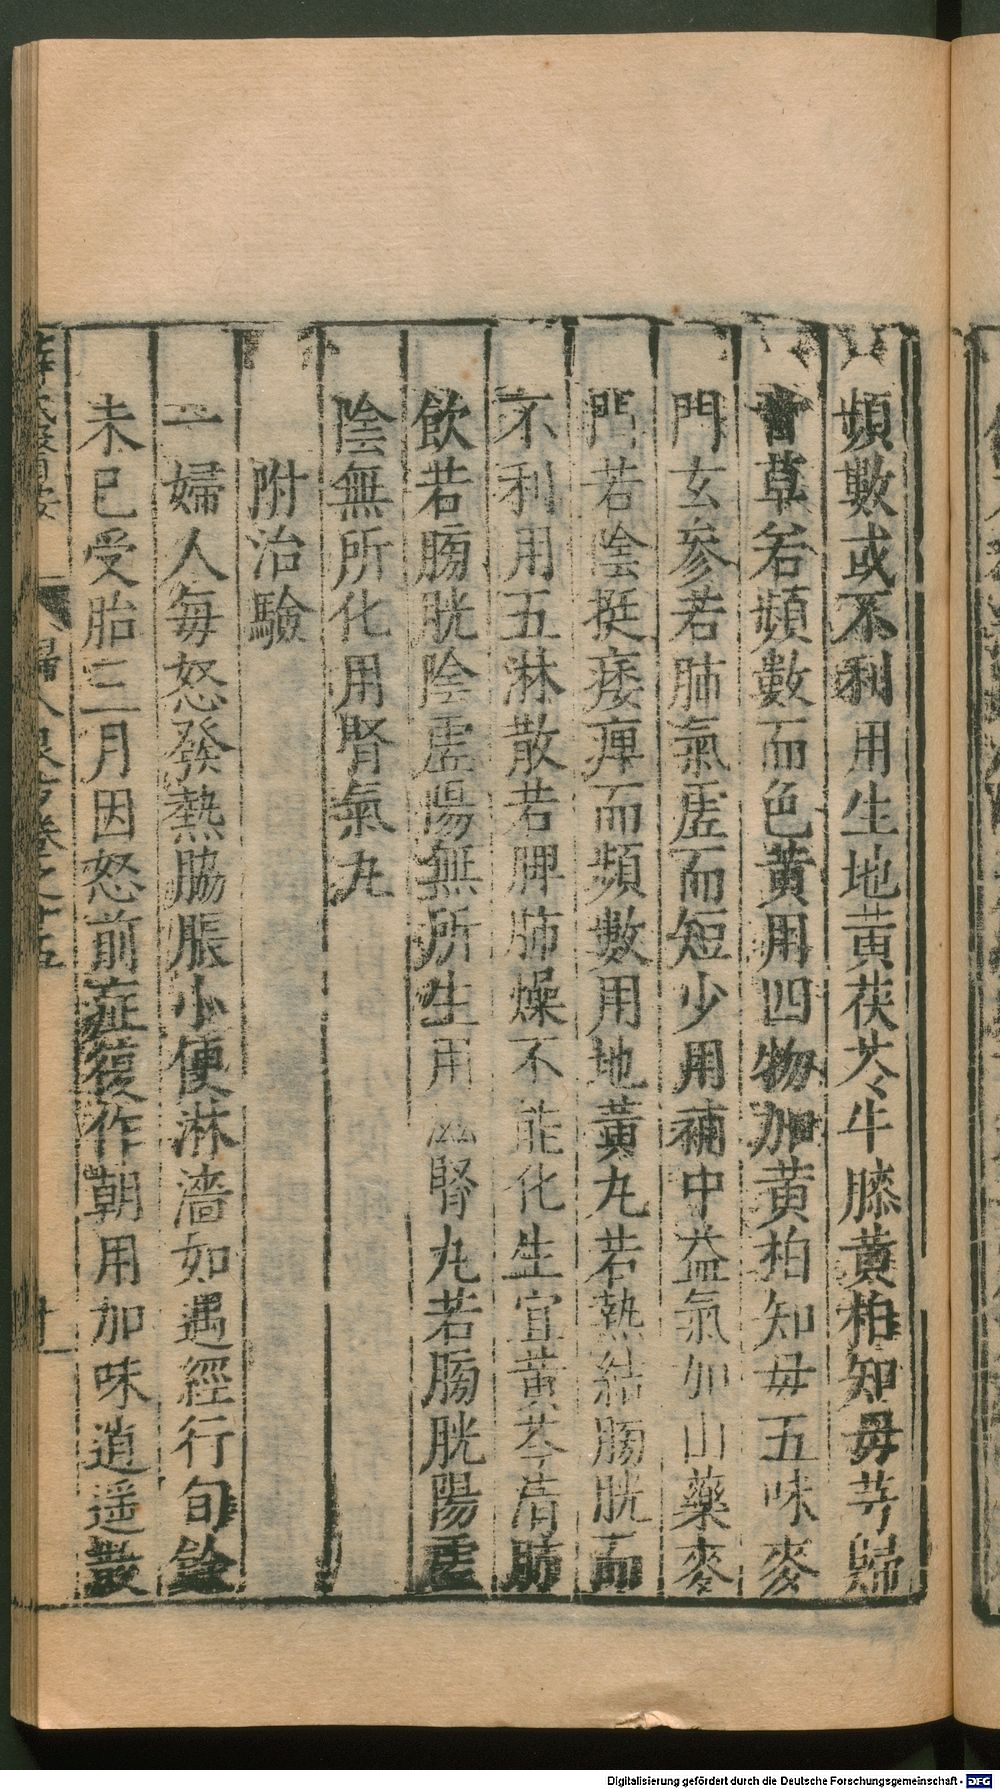 頻數或不利用生地黃茯苓牛膝黃柏知毋芎歸
甘草若頻數而色黃用四物加黃柏知毋五味麥
門玄參若肺氣虛而短少用補中益氣加山藥麥
門若陰挺痿痺而頻數用地黃丸若熱結膀胱而
不利用五淋散若脾肺燥不能化生宜黃芩清肺
飲若膀胱陰虛陽無所生用滋腎丸若膀胱陽虛
陰無所化用腎氣丸
附治驗
一婦人每怒發熱脇脹小便淋濇如遇經行旬餘
未已受胎三月因怒前症復作朝用加味逍遥散
婦人良方卷之廿五
Digitalisierung gefördert durch die Deutsche Forschungsgemeinschaft - DFG